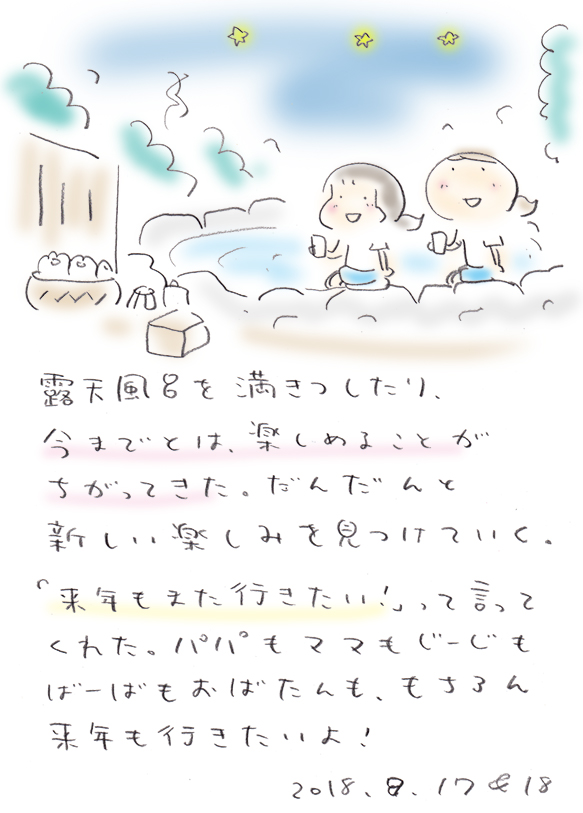 露天風呂を満きつしたり、
今までとは、楽しめることが
ちがってきた。だんだんと
新しい楽しみを見つけていく。
「来年もまた行きたい!」って言って
くれた。パパもママもじーじも
ばーばもおばたんも、もちろん
来年も行きたいよ!
2018.8.17&18